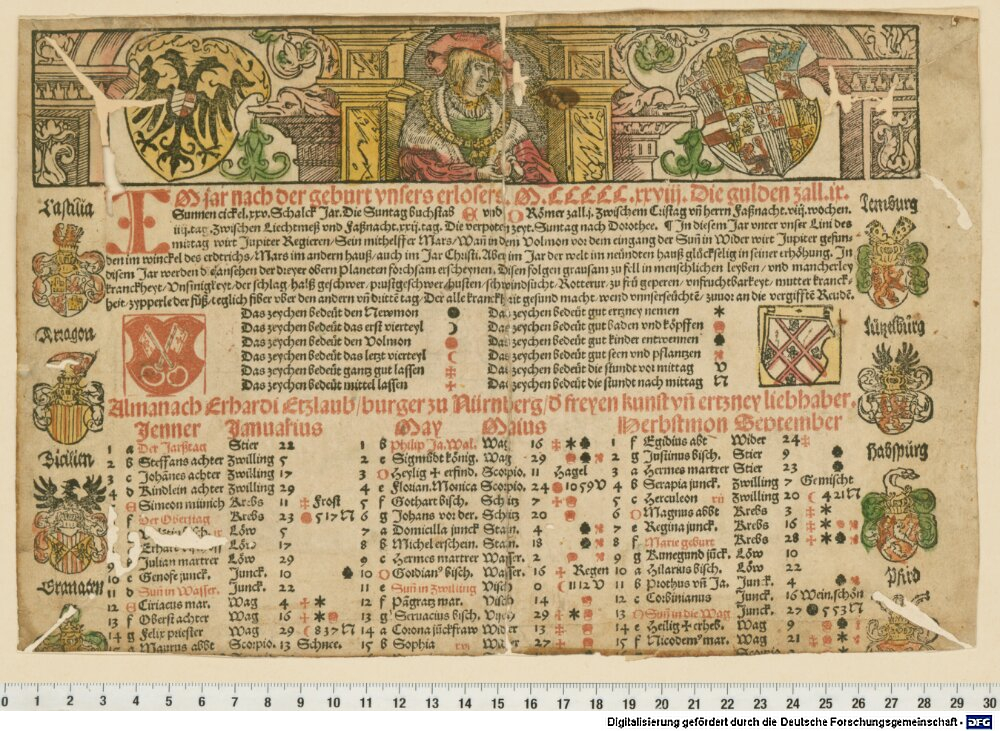 IM jar nach der geburt vnsers erlosers M.CCCCC.xxviij. Die gulden zall.ix.
Sunnen cickel.xxv. Schalck Jar. Die Suntag buchstab E vnd D Römer zall.j. Zwischem Cristag vñ herrn Faßnacht.viij.wochen.
iiij.tag. Zwischen Liechtmeß vnd Faßnacht.xxij.tag. Die verpoten zeyt. Suntag nach Dorothee. ¶ In disem Jar vnter vnser Lini des
mittag wirt Jupiter Regieren/Sein mithelffer Mars/Wañ in dem Volmon vor dem eingang der Suñ in Wider wirt Jupiter gefun-
den im winckel des erdterichs/Mars im andern hauß/auch im Jar Christi. Aber im Jar der welt im neündten hauß glückselig in seiner erhöhung. In
disem Jar werden d ansehen der dreyer obern Planeten forchsam erscheynen. Disen folgen grausam zu fell in menschlichen leyben/vnd mancherley
kranckheyt/Vnsinigkeyt/der schlag/halß geschwer/prustgeschwer/husten/schwindsücht/Rotterur/zu frü geperen/vnfruchtbarkeyt/mutter kranck-
heit/zypperle der füß/teglich fiber vber den andern vñ dritte tag. Der alle kranckheit gesund macht/wend vnnserseüchte/zuuor an die vergiffte Reude.
Das zeychen bedeüt den Newmon ●
Das zeychen bedeüt das erst vierteyl
Das zeychen bedeüt den Volmon
Das zeychen bedeüt das letzt vierteyl
Das zeychen bedeüt gantz gut lassen
Das zeychen bedeüt mittel lassen
Das zeychen bedeüt gut ertzney nemen
Das zeychen bedeüt gut baden vnd köpffen
Das zeychen bedeüt gut kinder entwennen
Das zeychen bedeüt gut seen vnd pflantzen
Das zeychen bedeüt die stunde vor mittag V
Das zeychen bedeüt die stund nach mittag N
Almanach Erhardi Etzlaub/burger zu Nürnberg/d freyen kunst vñ ertzney liebhaber.
Castilia
Aragon
Sicilien
Granaten
Jenner Januarius
1 a Der Jarßtag Stier 22
2 b Steffans achter Zwilling 5
3 c Johānes achter Zwilling 17
4 d Kindlein achter Zwilling 29
Simeon münich Krebs 11 ‡ Frost
f Der Oberstag Krebs 23 5 17 N
Löw 5
Erhart Löw 17
Julian martrer Löw 29
10 c Genofe junck. Junck. 10
11 d Suñ in Wasser. Junck. 22
12 E Ciriacus mar. Wag 4 ‡ *
13 f Oberst achter Wag 16 ‡ *
14 g Felix priester Wag 29 ☾ 8 37 N
a Maurus abbt Scorpio. 13 Schnee.
May Maius
1 b Philip Ja. Wal. Wag 16 ‡ *
2 c Sigmūdt könig. Wag 29
3 D Heylig + erfind. Scorpio. 11 Hagel
4 e Florian. Monica Scorpio. 24 10 59 V
5 f Gothart bisch. Schütz 7
6 g Johans vor der. Schütz 20
7 a Domicilla junck Stain. 4
8 b Michel erschein. Stain. 18
9 c Hermes martrer Wasser. 2
10 D Gordian⁹ bisch. Wasser. 16 ‡ Regen
11 e Suñ in Zwilling Visch 0 ☾ 1 12 V
12 f Pāgratz mar. Visch 14
13 g Seruacius bisch. Visch 29 ‡ *
14 a Corona jückfraw Wider 13 ‡
15 b Sophia Wider 27 ‡
Herbstmon September
1 f Egidius abt Wider 24 ‡
2 g Justinus bisch. Stier 9
3 a Hermes martrer Stier 23
4 b Serapia junck. Zwilling 7 Gemischt
5 c Herculeon Zwilling 20 ☾ 4 21 N
6 D Magnus abbt Krebs 3 ‡ *
7 e Regina junck. Krebs 16 ‡ *
8 f Marie geburt Krebs 28 ‡ *
9 g Kunegund jück. Löw 10
10 a Hilarius bisch. Löw 22
11 b Prothus vñ Ja. Junck. 4
12 c Corbinianus Junck. 16 Wein.schön
13 D Suñ in die Wag Junck. 27 ● 5 53 N
14 e Heilig + erheb. Wag 9
15 f Nicodem⁹ mar. Wag 21
Temburg
Lützelburg
Habspurg
Phird
0 1 2 3 4 5 6 7 8 9 10 11 12 13 14 15 16 17 18 19 20 21 22 23 24 25 26 27 28 29 30
Digitalisierung gefördert durch die Deutsche Forschungsgemeinschaft - DFG